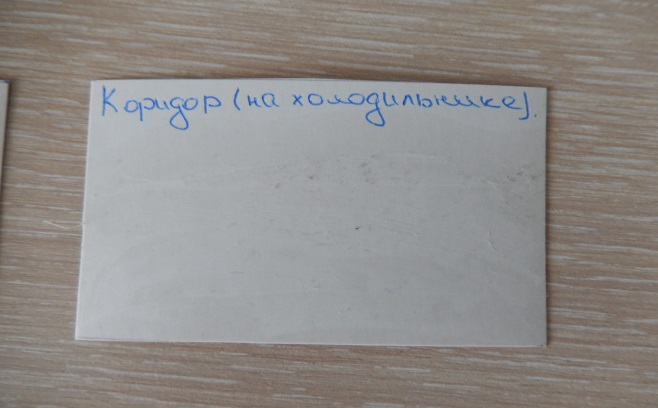 Коридор (на холодильнике).